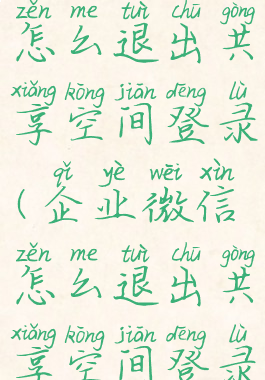 zěn me tuì chū gòng
怎么退出共
xiǎng kōng jiān dēng lù
享空间登录
qǐ yè wēi xìn
（企业微信
zěn me tuì chū gòng
怎么退出共
xiǎng kōng jiān dēng lù
享空间登录